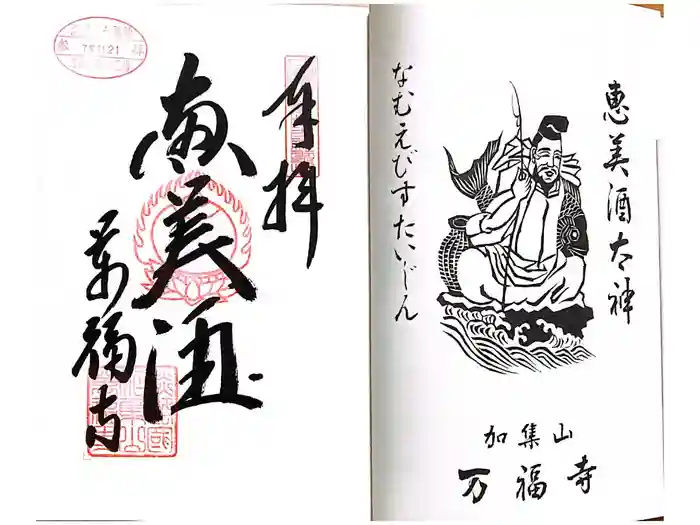 奉拝
恵美酒
萬福寺
7.11.21
恵美酒太神
なむえびすたいじん
加集山
万福寺